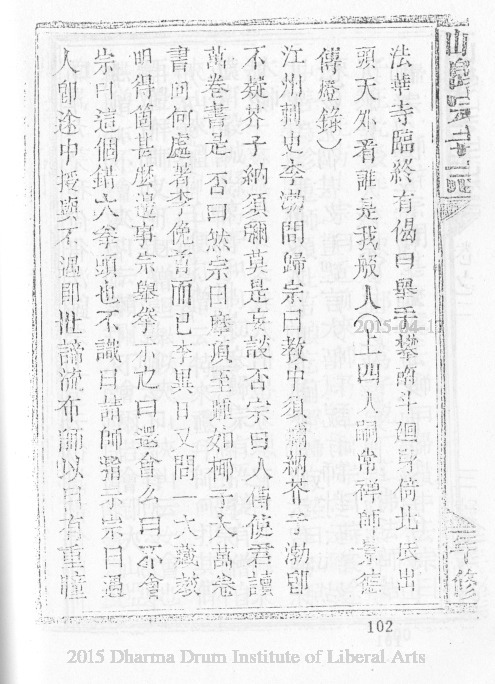 法華寺臨終有偈曰舉手攀南斗廻身倚北辰出
頭天外看誰是我般人(上四人嗣常禪師景德
傳燈錄)
江州刺史李渤問歸宗曰教中須彌納芥子渤即
不疑芥子納須彌莫是妄談否宗曰人傳使君讀
萬卷書是否曰然宗曰摩頂至踵如椰子大萬卷
書向何處著李俛首而已李異日又問一大藏教
明得箇甚麼邊事宗舉拳示之曰還會么曰不會
宗曰這個錯大拳頭也不識曰請師指示宗曰遇
人即途中授與不遇即世諦流布師以目有重瞳
年修
2015-04-17
102
2015 Dharma Drum Institute of Liberal Arts